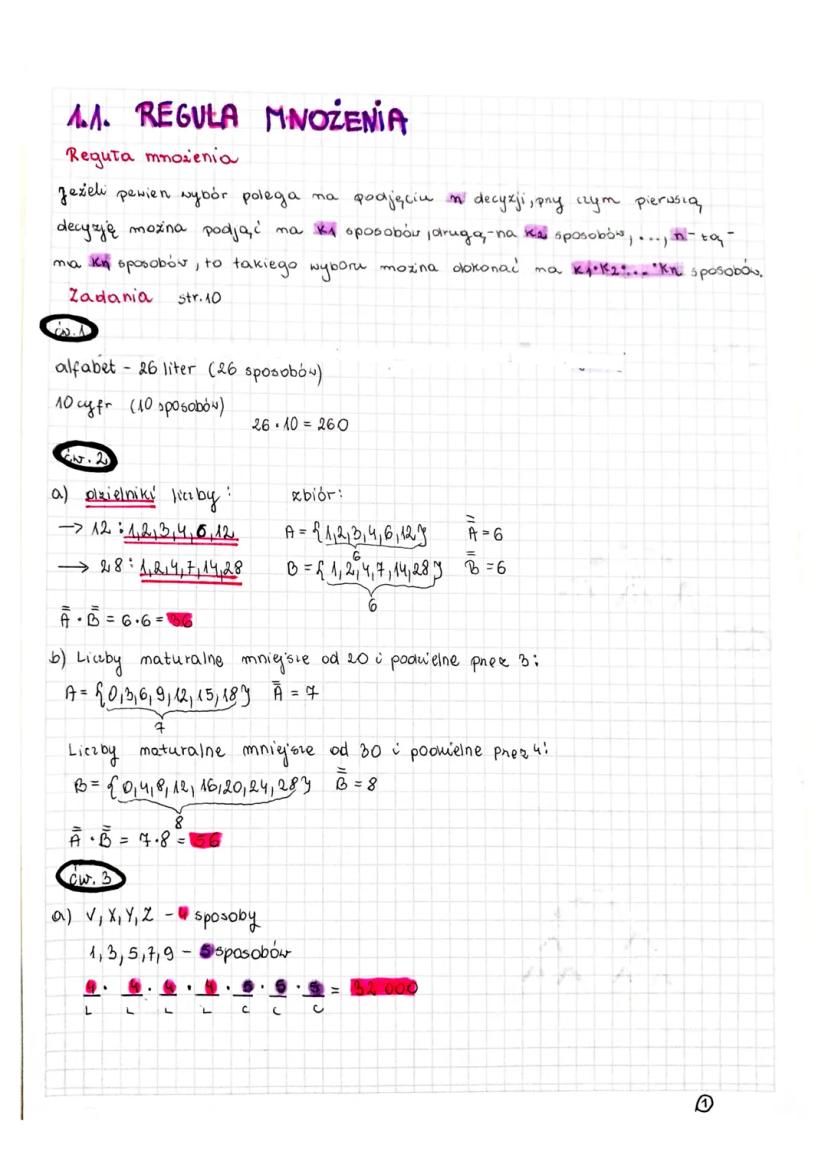 1.1. REGUŁA MNOŻENIA
Reguła mnożenia
Jeżeli pewien wybór polega na podjęciu n decyzji, przy czym pierwszą
decyzję można podjąć na k1 sposobów, drugą-na k2 sposobów, ..., n-tą-
na kn sposobów, to takiego wyboru można dokonać na k1·k2·...·kn sposobów.
Zadania str. 10
ćw. 1
alfabet - 26 liter (26 sposobów)
10 cyfr (10 sposobów)
26 · 10 = 260
ćw. 2
a) dzielniki liczby: zbiór:
→ 12: 1,2,3,4,6,12 A = {1,2,3,4,6,12} A̿ = 6
6
→ 28: 1,2,4,7,14,28 B = {1,2,4,7,14,28} B̿ = 6
6
A̿ · B̿ = 6·6 = 36
b) Liczby maturalne mniejsze od 20 i podzielne przez 3:
A = {0,3,6,9,12,15,18} A̿ = 7
7
Liczby maturalne mniejsze od 30 i podzielne przez 4:
B = {0,4,8,12,16,20,24,28} B̿ = 8
8
A̿ · B̿ = 7·8 = 56
ćw. 3
a) V, X, Y, Z - 4 sposoby
1,3,5,7,9 - 5 sposobów
4 · 4 · 4 · 4 · 5 · 5 · 5 = 32 000
L L L L C C C
1